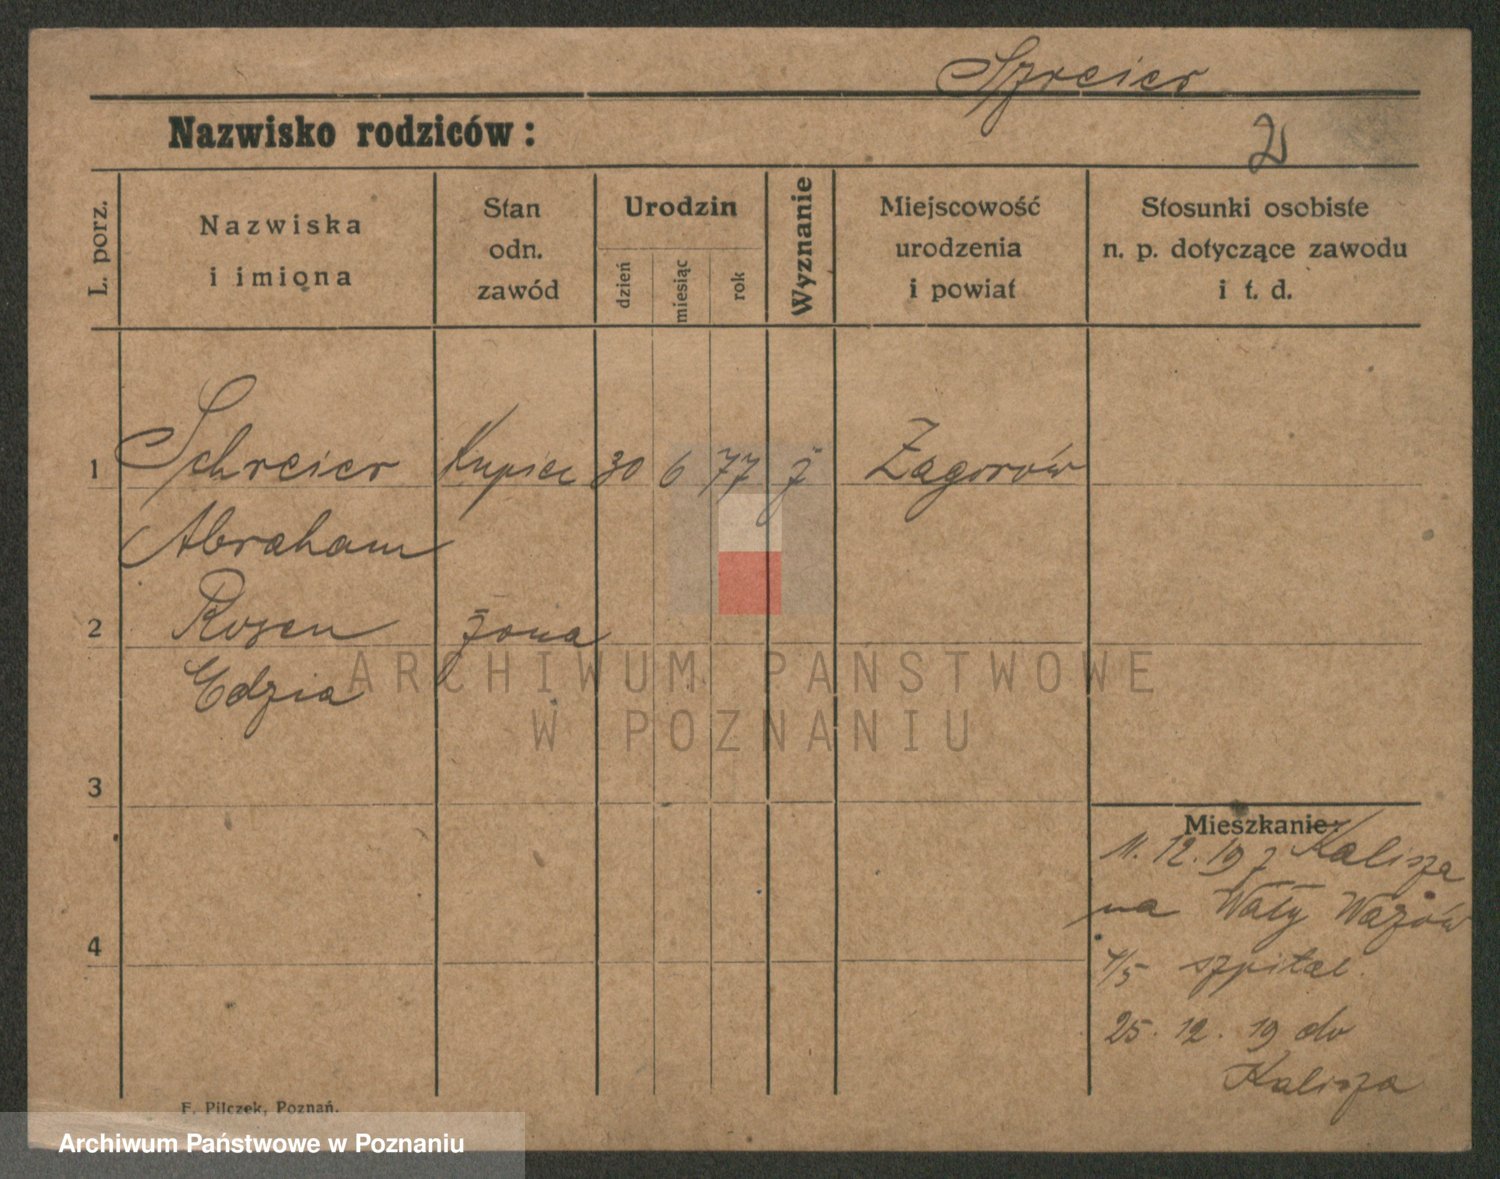 Szreier
Nazwisko rodziców:
2
L. porz.
Nazwiska
i imiona
Stan
odn.
zawód
Urodzin
dzień
miesiąc
rok
Wyznanie
Miejscowość
urodzenia
i powiat
Stosunki osobiste
n. p. dotyczące zawodu
i t. d.
1 Schreier Kupiec 30 6 77 ż Zagorów
Abraham
2 Rosen żona
Edzia
3
Mieszkanie:
11. 12. 19 z Kalisza
na Wały Wazów
4/5 szpital.
25. 12. 19 do
Kalisza
4
F. Pilczek, Poznań.
ARCHIWUM PAŃSTWOWE
W POZNANIU
Archiwum Państwowe w Poznaniu